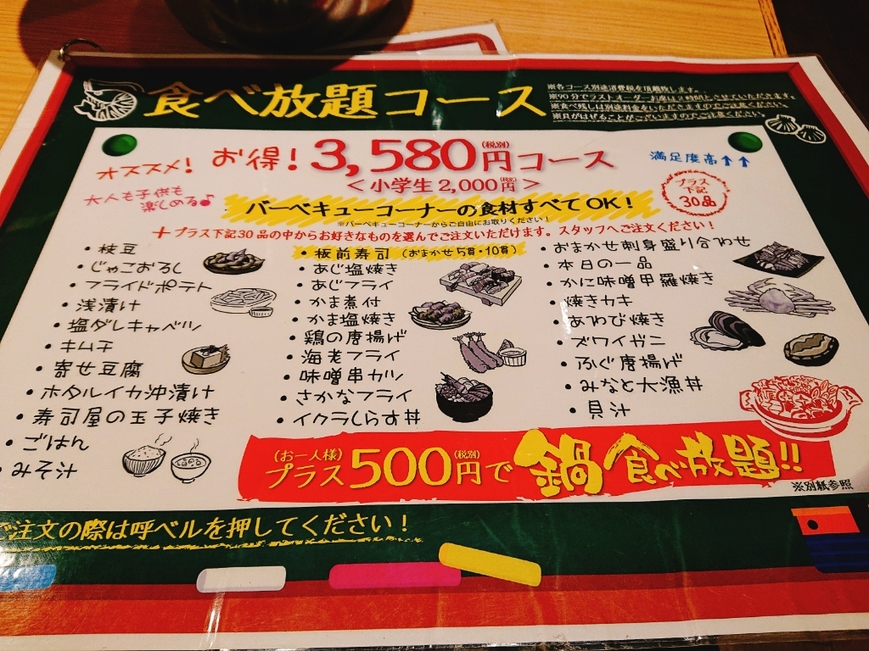 食べ放題コース
※各コース別途消費税を頂戴致します。
※90分でラストオーダーお席は2時間とさせていただきます。
※食べ残しは別途料金をいただきますのでご注意ください。
※貝がはぜることがございますのでご注意ください。
オススメ! お得! 3,580円(税別)コース
<小学生2,000円(税別)>
満足度高↑↑
大人も子供も
楽しめる♪
プラス
下記
30品
バーベキューコーナーの食材すべてOK!
※バーベキューコーナーからご自由にお取りください!
+プラス下記30品の中からお好きなものを選んでご注文いただけます。スタッフへご注文ください!
・枝豆
・じゃこおろし
・フライドポテト
・浅漬け
・塩ダレキャベツ
・キムチ
・寄せ豆腐
・ホタルイカ沖漬け
・寿司屋の玉子焼き
・ごはん
・みそ汁
・板前寿司(おまかせ5貫・10貫)
・あじ塩焼き
・あじフライ
・かま煮付
・かま塩焼き
・鶏の唐揚げ
・海老フライ
・味噌串カツ
・さかなフライ
・イクラしらす丼
・おまかせ刺身盛り合わせ
・本日の一品
・かに味噌甲羅焼き
・焼きカキ
・あわび焼き
・ズワイガニ
・ふぐ唐揚げ
・みなと大漁丼
・貝汁
(お一人様)プラス500円(税別)で鍋食べ放題!!
※別紙参照
ご注文の際は呼ベルを押してください!